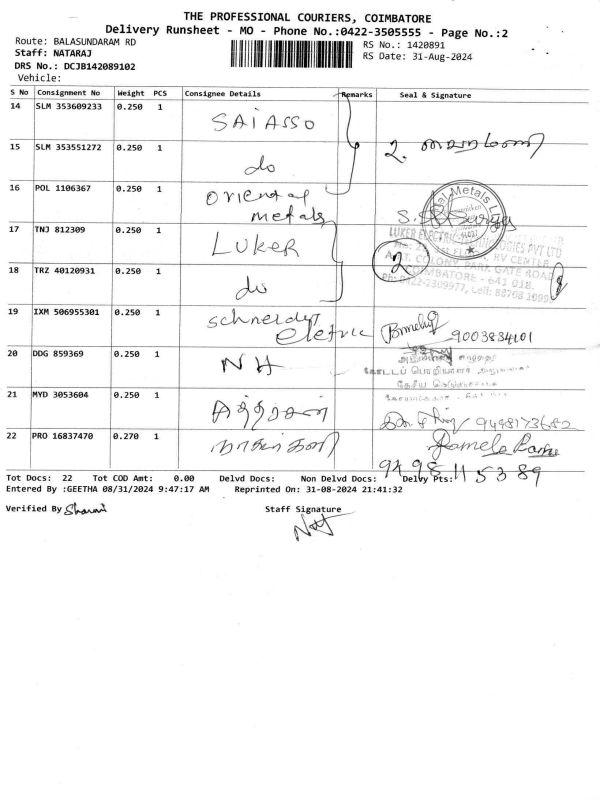 THE PROFESSIONAL COURIERS, COIMBATORE
Delivery Runsheet - MO - Phone No.:0422-3505555 - Page No.:2
Route: BALASUNDARAM RD
RS No.: 1420891
Staff: NATARAJ
RS Date: 31-Aug-2024
DRS No.: DCJB142089102
Vehicle:
S No Consignment No Weight PCS Consignee Details Remarks Seal & Signature
14 SLM 353609233 0.250 1 SAI ASSO
15 SLM 353551272 0.250 1 do 2.
16 POL 1106367 0.250 1 oriental metals
17 TNJ 812309 0.250 1 LUKER
LUKER ELECTRIC TECHNOLOGIES PVT LTD
18 TRZ 40120931 0.250 1 do 2
COIMBATORE - 641 018.
19 IXM 506955301 0.250 1 schneider eletric 9003834101
20 DDG 859369 0.250 1 NH
21 MYD 3053604 0.250 1 9498173682
22 PRO 16837470 0.270 1 Pamela
9498115389
Tot Docs: 22 Tot COD Amt: 0.00 Delvd Docs: Non Delvd Docs: Delvy Pts:
Entered By :GEETHA 08/31/2024 9:47:17 AM Reprinted On: 31-08-2024 21:41:32
Verified By Sharani Staff Signature